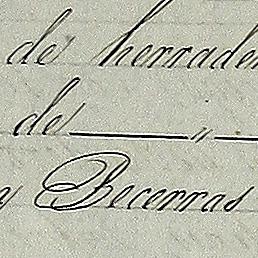 de herrade
de — „ —
y Becerras